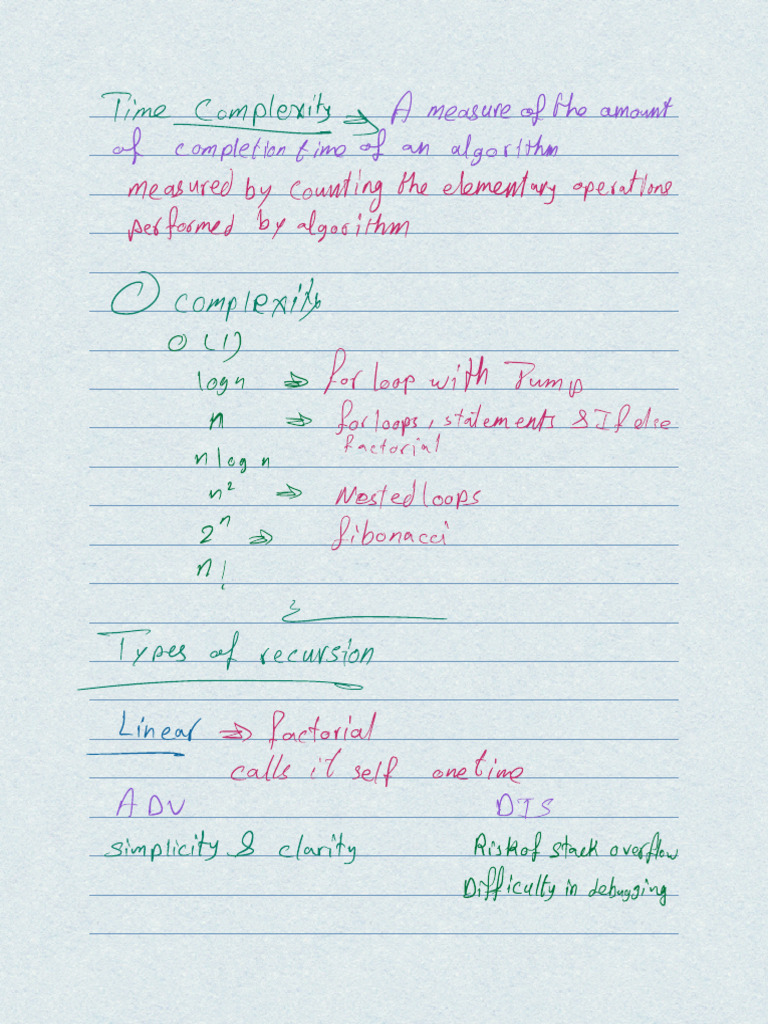 Time Complexity ⇒ A measure of the amount
of completion time of an algorithm
measured by counting the elementary operations
performed by algorithm
O complexity
O (1)
log n ⇒ for loop with Jump
n ⇒ for loops, statements & If else
factorial
n log n
n² ⇒ Nested loops
2ⁿ ⇒ fibonacci
n!
Types of recursion
Linear ⇒ factorial
calls it self one time
ADV DIS
simplicity & clarity Risk of stack overflow
Difficulty in debugging